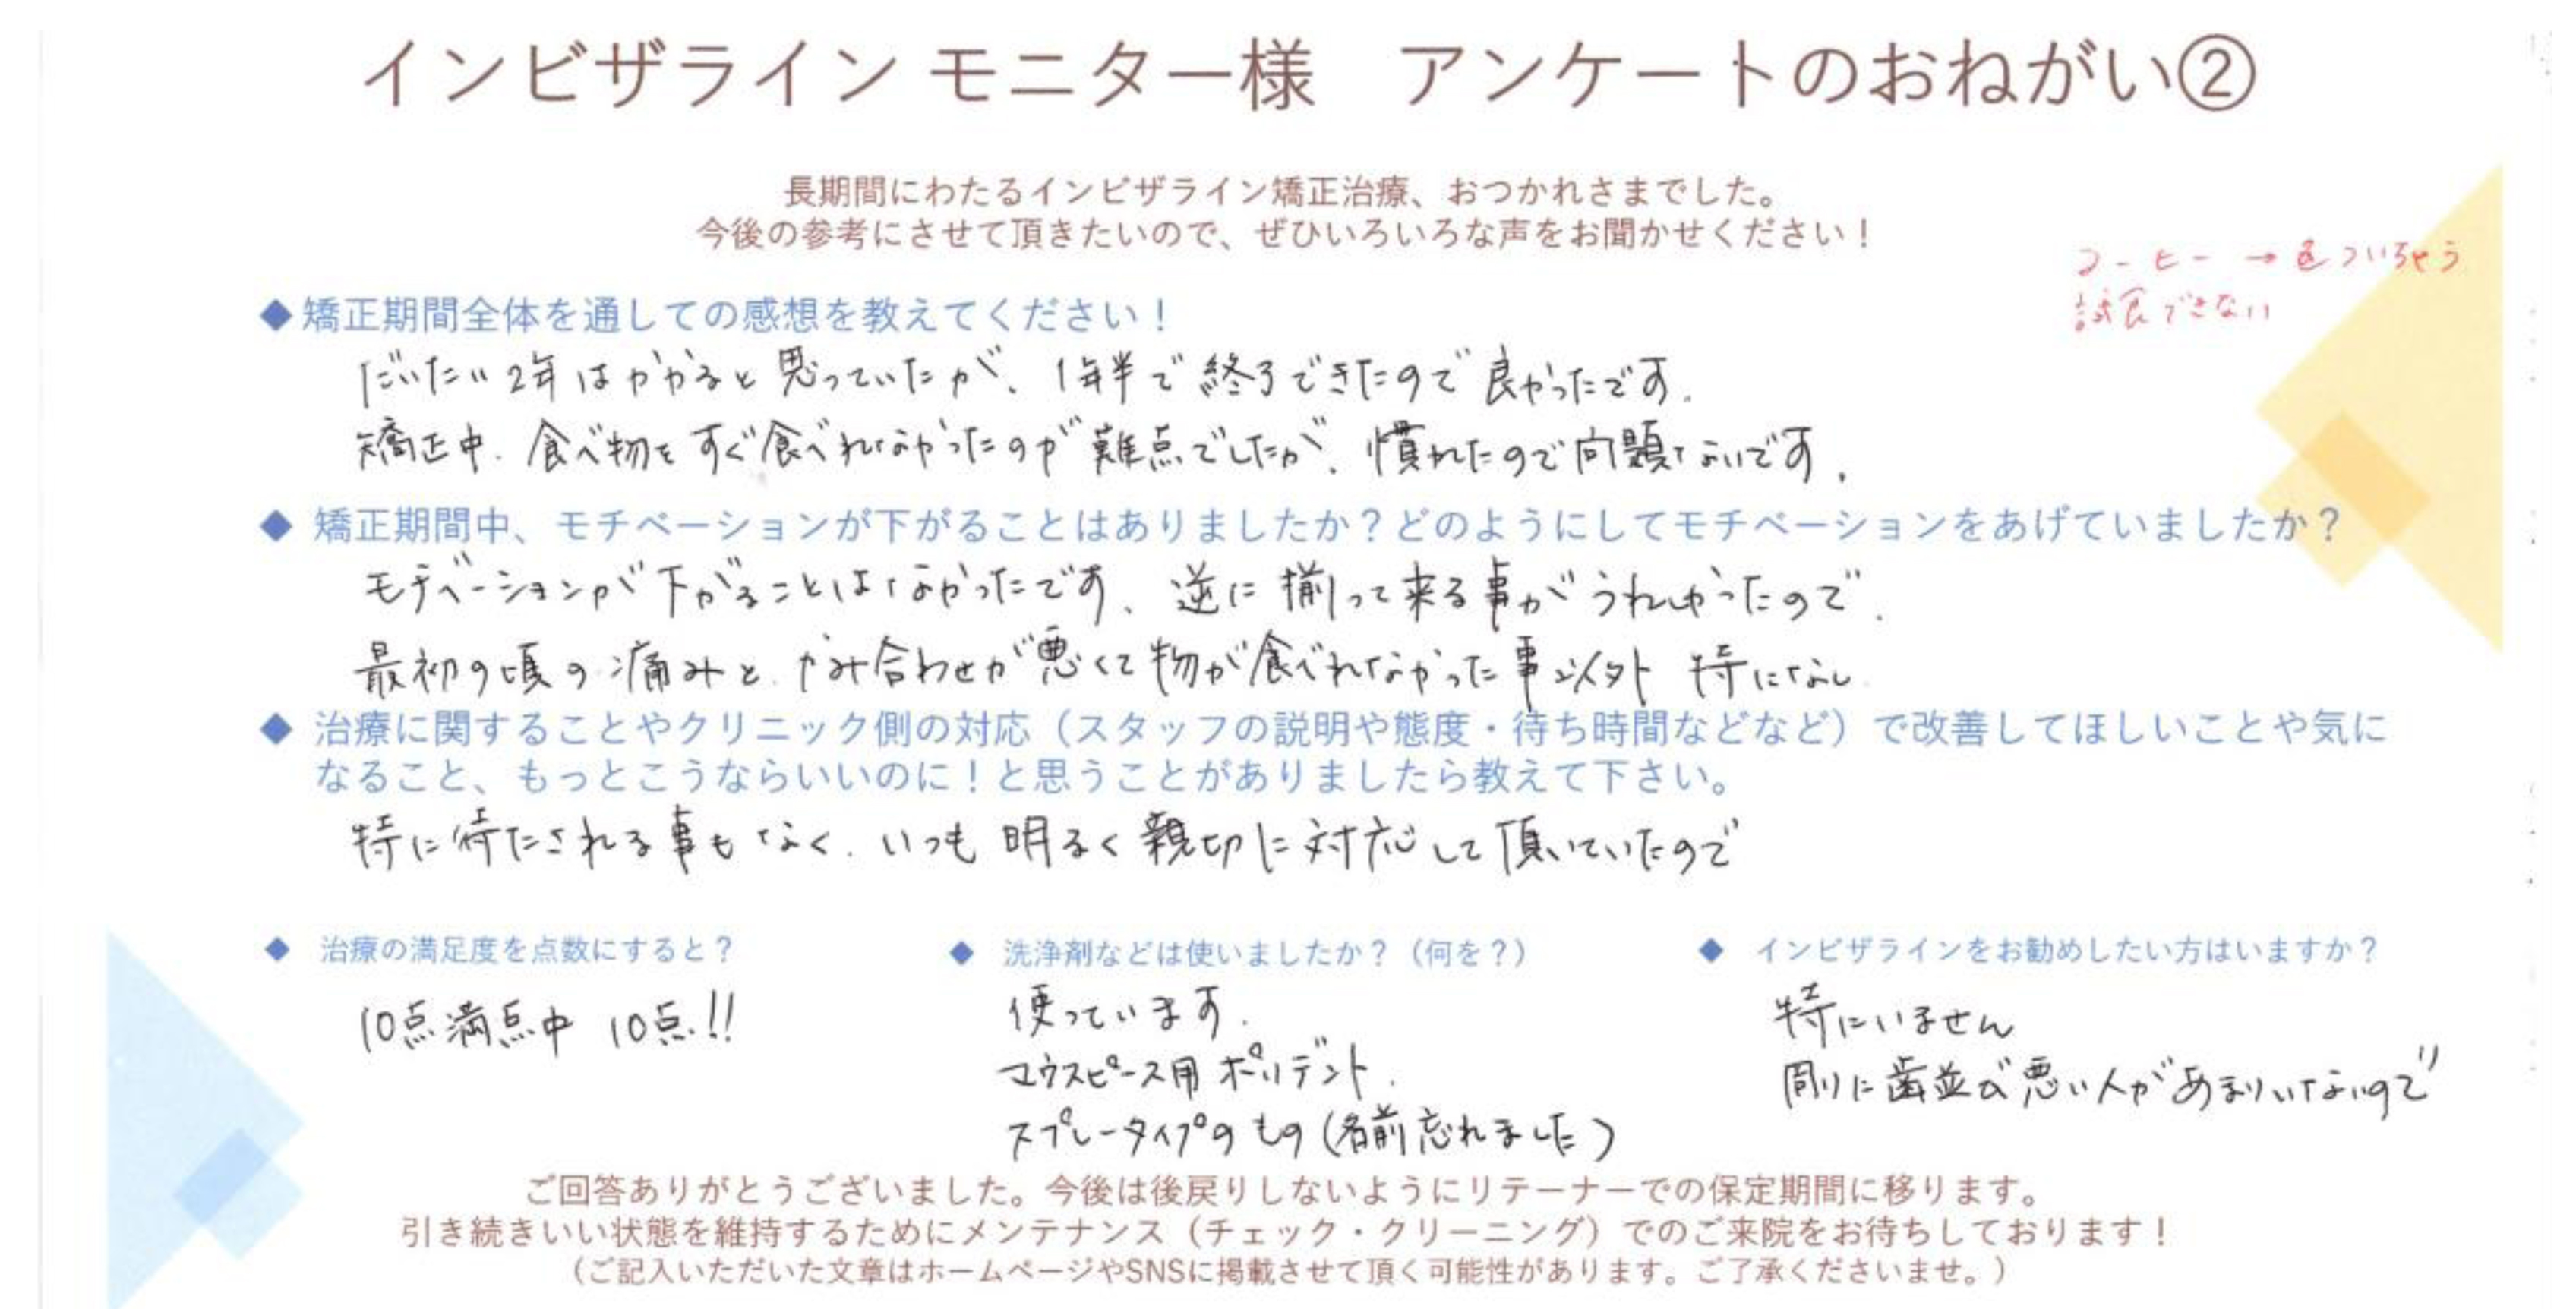 インビザライン モニター様　アンケートのおねがい②
長期間にわたるインビザライン矯正治療、おつかれさまでした。
今後の参考にさせて頂きたいので、ぜひいろいろな声をお聞かせください！
コーヒー → 色ついちゃう
試食できない
◆ 矯正期間全体を通しての感想を教えてください！
だいたい2年はかかると思っていたが、1年半で終了できたので良かったです。
矯正中、食べ物をすぐ食べれなかったのが難点でしたが、慣れたので問題ないです。
◆ 矯正期間中、モチベーションが下がることはありましたか？どのようにしてモチベーションをあげていましたか？
モチベーションが下がることはなかったです、逆に揃って来る事がうれしかったので。
最初の頃の痛みと、かみ合わせが悪くて物が食べれなかった事以外 特になし
◆ 治療に関することやクリニック側の対応（スタッフの説明や態度・待ち時間などなど）で改善してほしいことや気に
なること、もっとこうならいいのに！と思うことがありましたら教えて下さい。
特に待たされる事もなく、いつも明るく親切に対応して頂いていたので
◆ 治療の満足度を点数にすると？
10点満点中 10点!!
◆ 洗浄剤などは使いましたか？（何を？）
使っています。
マウスピース用ポリデント。
スプレータイプのもの（名前忘れました）
◆ インビザラインをお勧めしたい方はいますか？
特にいません
周りに歯並び悪い人があまりいないので
ご回答ありがとうございました。今後は後戻りしないようにリテーナーでの保定期間に移ります。
引き続きいい状態を維持するためにメンテナンス（チェック・クリーニング）でのご来院をお待ちしております！
（ご記入いただいた文章はホームページやSNSに掲載させて頂く可能性があります。ご了承くださいませ。）